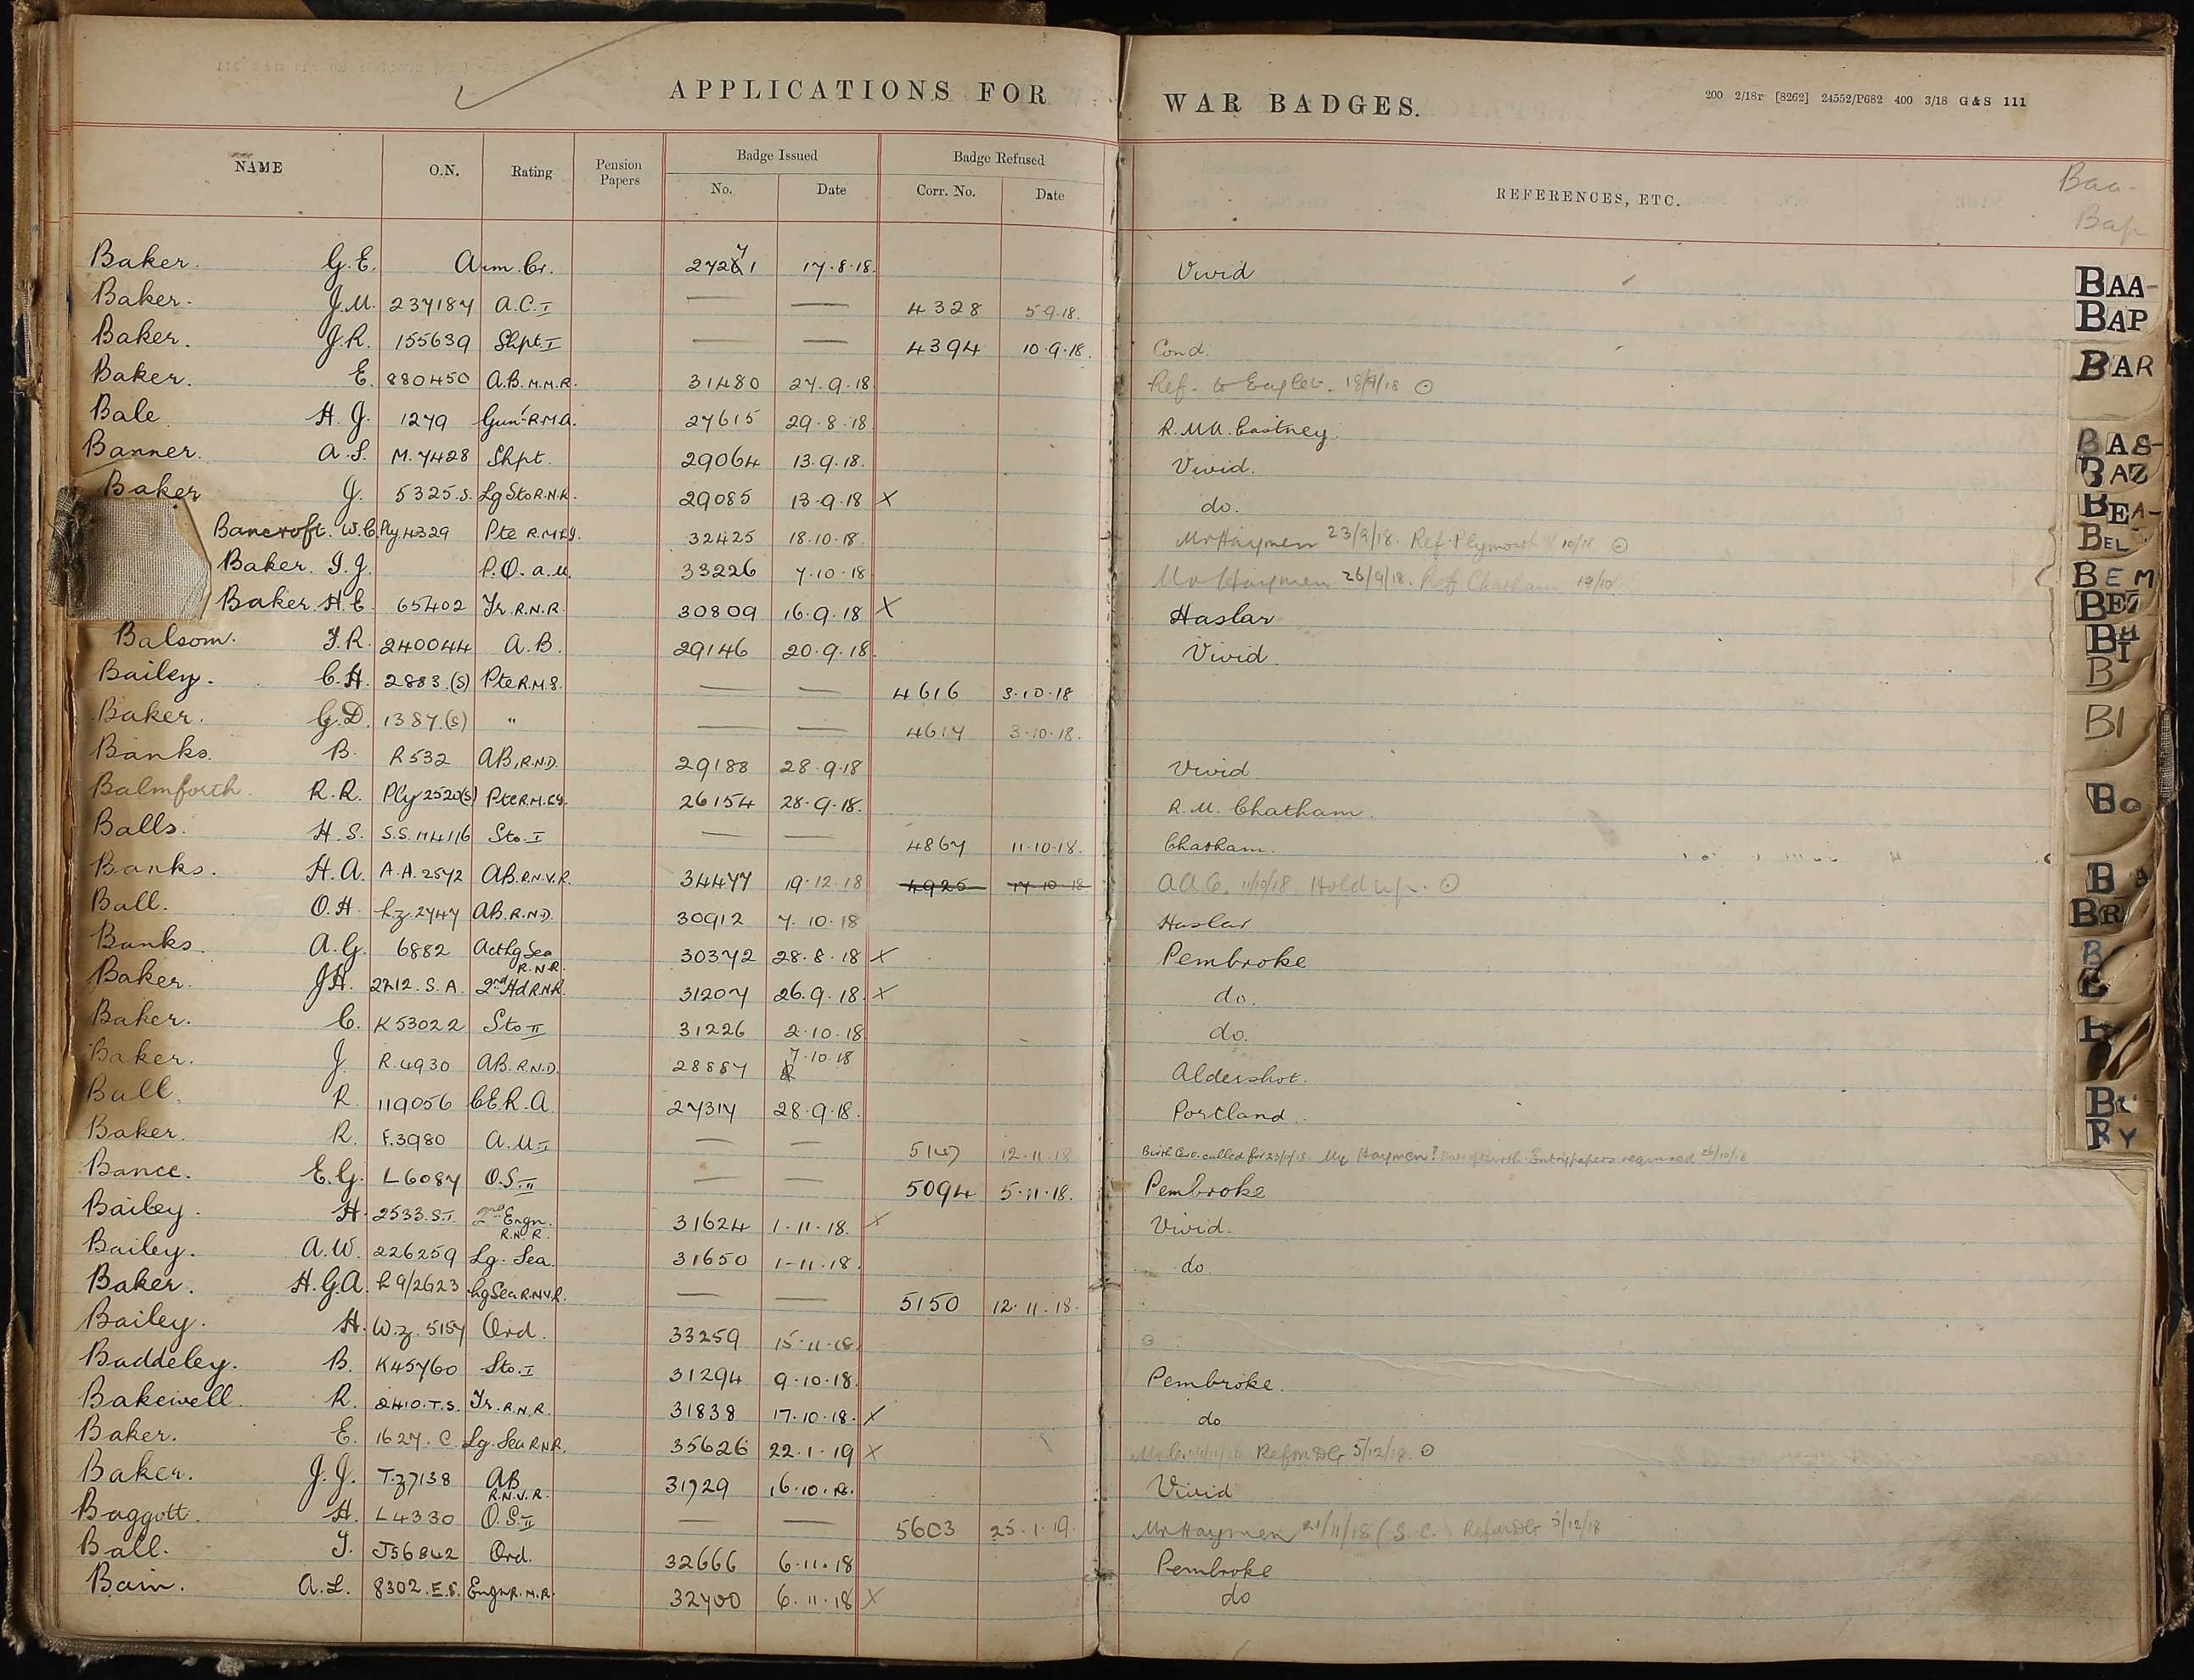 APPLICATIONS FOR WAR BADGES.
200 2/18r [8262] 24552/P682 400 3/18 G & S 111
NAME O.N. Rating Pension Papers Badge Issued Badge Refused REFERENCES, ETC. Baa-
No. Date Corr. No. Date Bap
Baker. G.E. Arm. Cr. 27271 17.8.18. Vivid
Baker. J.M. 237187 A.C. I — — 4328 5.9.18.
Baker. J.R. 155639 Shpt. I — — 4394 10.9.18. Cond.
Baker. E. 880450 A.B. M.M.R. 31480 27.9.18 Ref. to Eaglet. 18/9/18
Bale H.J. 1279 Gunr R.M.A. 27615 29.8.18 R.M.A. Eastney.
Banner. A.S. M.7428 Shpt. 29064 13.9.18. Vivid.
Baker J. 5325.S. Lg Sto R.N.R. 29085 13.9.18 X do.
Bancroft. W.C. Ply.4329 Pte R.M.L.I. 32425 18.10.18. Mr Haymen 23/9/18. Ref. Plymouth 10/18
Baker. I.J. P.O. a.M. 33226 7.10.18 Mr Haymen 26/9/18. Ref Chatham 19/10
Baker. H.E. 65402 Tr. R.N.R. 30809 16.9.18 X Haslar
Balsom. F.R. 240044 A.B. 29146 20.9.18. Vivid
Bailey. C.H. 2883.(S) Pte R.M. — — 4616 3.10.18
Baker. G.D. 1387.(S) " — — 4617 3.10.18.
Banks. B. R532 AB. R.N.D. 29188 28.9.18 Vivid
Balmforth. R.R. Ply 2520(S) Pte R.M.L.I. 26154 28.9.18. R.M. Chatham.
Balls. H.S. S.S.114116 Sto. I — — 4867 11.10.18. Chatham.
Banks. H.A. A.A.2572 AB. R.N.V.R. 34477 19.12.18 4925 17.10.18 A.A.C. 11/10/18. Hold up.
Ball. O.H. L.Z.2747 AB. R.N.D. 30912 7.10.18 Haslar
Banks. A.G. 6882 Act Lg Sea R.N.R. 30372 28.8.18 X Pembroke
Baker. J.H. 2212.S.A. 2nd Hd R.N.R. 31207 26.9.18. X do.
Baker. C. K53022 Sto II 31226 2.10.18 do.
Baker. J. R.4930 AB. R.N.D. 28887 7.10.18 Aldershot.
Ball. R. 119056 C.E.R.A. 27317 28.9.18. Portland.
Baker. R. F.3980 A.M. I — — 5147 12.11.18 Birth Cert. called for 23/9/18 Mr Haymen? Date of Birth Entry papers required 26/10/18
Bance. E.G. L6087 O.S. II — — 5094 5.11.18. Pembroke
Bailey. H. 2533.S.T. 2nd Engn. R.N.R. 31624 1.11.18. X Vivid.
Bailey. A.W. 226259 Lg. Sea. 31650 1-11.18. do.
Baker. H.G.A. L9/2623 Lg Sea R.N.V.R. — — 5150 12.11.18.
Bailey. H. W.Z.5157 Ord. 33259 15.11.18.
Baddeley. B. K45760 Sto. I 31294 9.10.18. Pembroke.
Bakewell. R. 2410.T.S. Tr. R.N.R. 31838 17.10.18. X do
Baker. E. 1627.C. Lg. Sea R.N.R. 35626 22.1.19 X Refer DG 5/12/18.
Baker. J.J. T.Z7138 AB R.N.V.R. 31729 16.10.18. Vivid
Baggott. H. L4330 O.S. II — — 5603 25.1.19. Mr Haymen 21/11/18 (S.C.) Refer DG 5/12/18
Ball. T. J56842 Ord. 32666 6.11.18 Pembroke
Bain. A.L. 8302.E.S. Engn R.N.R. 32700 6.11.18 X do
BAA-
BAP
BAR
BAS-
BAZ
BEA-
BEL
BEM
BEZ
BH
BI
BL
BO
BR
BU
BY